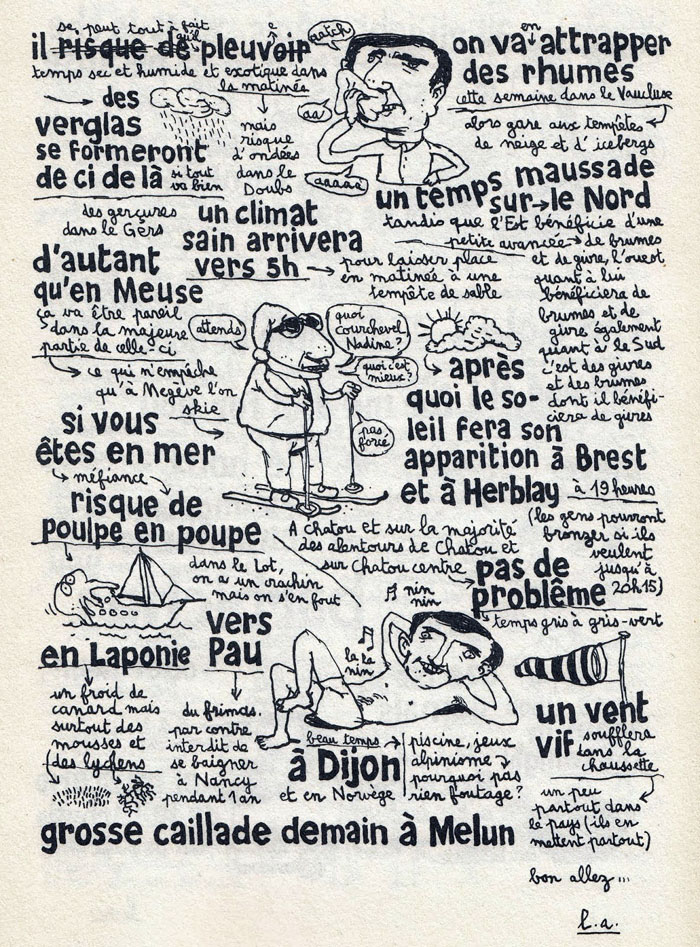 se peut tout à fait
qu'il
il risque de pleuvoir
e
temps sec et humide et exotique dans
la matinée
des
verglas
se formeront
de ci de là si tout
va bien
mais
risque
d'ondées
dans le
Doubs
aatch
aa!
aaaaa
en
on va attrapper
des rhumes
cette semaine dans le Vaucluse
alors gare aux tempêtes
de neige et d'icebergs
un temps maussade
sur le Nord
tandis que l'Est bénéficie d'une
petite avancée de brumes
et de givre, l'ouest
quant à lui
bénéficiera de
brumes et de
givre également
quant à le Sud
c'est des givres
et des brumes
dont il bénéfi-
ciera de givres
des gerçures
dans le Gers
un climat
sain arrivera
vers 5h
pour laisser place
en matinée à une
tempête de sable
d'autant
qu'en Meuse
ça va être pareil
dans la majeure
partie de celle-ci
ce qui n'empêche
qu'à Megève l'on
skie
attends
quoi
courchevel
Nadine?
quoi c'est
mieux?
pas
forcé
après
quoi le so-
leil fera son
apparition à Brest
et à Herblay à 19 heures
(les gens pourront
bronzer si ils
veulent
jusqu'à
20h15)
si vous
êtes en mer
méfiance
risque de
poulpe en poupe
A Chatou et sur la majorité
des alentours de Chatou et
sur Chatou centre
pas de
problême
temps gris à gris-vert
dans le Lot,
on a un crachin
mais on s'en fout
nin
nin
la la
nin
en Laponie
un froid de
canard mais
surtout des
mousses et
des lychens
vers
Pau
du frimas.
par contre
interdit de
se baigner
à Nancy
pendant 1 an
beau temps
à Dijon
et en Norvège
piscine, jeux
alpinisme
pourquoi pas
rien foutage?
un vent
vif soufflera
dans la
chaussette
un peu
partout dans
le pays (ils en
mettent partout)
grosse caillade demain à Melun
bon allez...
l.a.